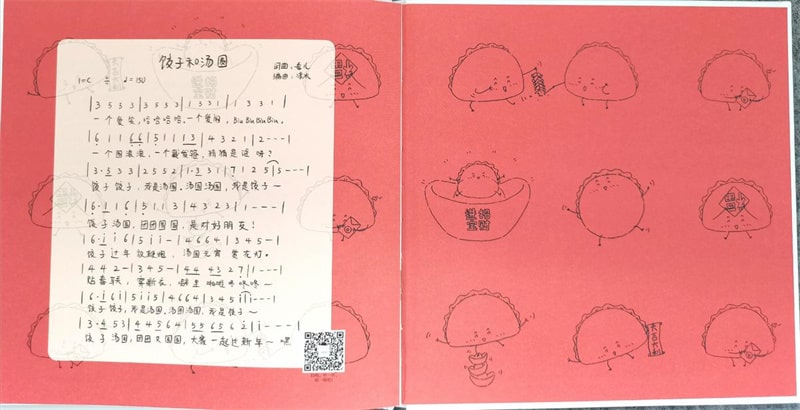 饺子和汤圆
词曲：
编曲：
1=C ♩=150
|3 5 5 3|3 5 5 3|1 3 3 1|1 3 3 1|
一个爱笑，哈哈哈哈。一个爱闹，Biu Biu Biu Biu。
|6 1 1 6 6|5 1 1 1 3|4 3 2 1|2---|
一个圆滚滚，一个，猜猜是谁呀？
|3·5 3 3|2 5 5 2|1·5 3 1|7 1 2 5|5---|
饺子饺子，我是汤圆，汤圆汤圆，我是饺子～
|6·1 1 6|5 1 1 3|4 3 2 3|1---|
饺子汤圆，团团圆圆，是对好朋友！
|6·i i 6|5 i i -|4 6 6 4|3 4 5 -|
饺子过年放鞭炮，汤圆元宵赏花灯。
|4 4 2 -|3 4 5 -|4 4 4 3 2 7|1---|
贴春联，穿新衣，噼里啪啦～
|6·i 6 i|5 i i 5|4 6 6 4|3 4 5 i|i---|
饺子饺子，我是汤圆，汤圆汤圆，我是饺子～
|3·4 5 3|4 4 5 6 4|5 5 6 5 6 2|i---|
饺子汤圆，团团又圆圆，大家一起过新年～嘿
招财进宝
大吉大利